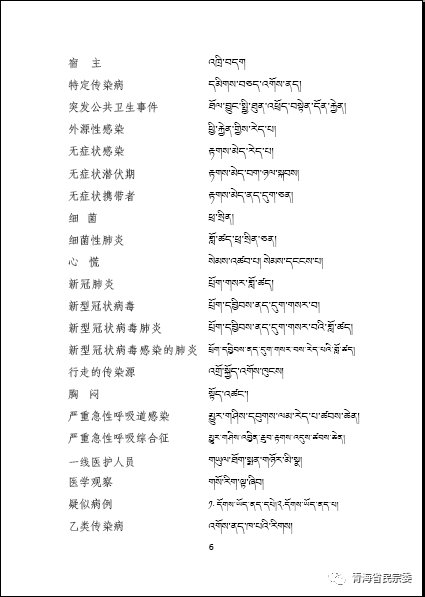 宿 主 འཁྲི་བདག
特定传染病 དམིགས་བཅད་འགོས་ནད།
突发公共卫生事件 ཐོལ་བྱུང་སྤྱི་ཐུན་འཕྲོད་བསྟེན་དོན་རྐྱེན།
外源性感染 ཕྱི་རྐྱེན་གྱིས་རེད་པ།
无症状感染 རྟགས་མེད་རེད་པ།
无症状潜伏期 རྟགས་མེད་བག་ཉལ་སྐབས།
无症状携带者 རྟགས་མེད་ནད་དུག་ཅན།
细 菌 ཕྲ་སྲིན།
细菌性肺炎 གློ་ཚད་ཕྲ་སྲིན་ཅན།
心 慌 སེམས་འཚབ་པ། སེམས་དངངས་པ།
新冠肺炎 པྲོག་གསར་གློ་ཚད།
新型冠状病毒 པྲོག་དབྱིབས་ནད་དུག་གསར་བ།
新型冠状病毒肺炎 པྲོག་དབྱིབས་ནད་དུག་གསར་བའི་གློ་ཚད།
新型冠状病毒感染的肺炎 པྲོག་དབྱིབས་ནད་དུག་གསར་བས་རེད་པའི་གློ་ཚད།
行走的传染源 འགྲོ་སྐྱོད་འགོས་ཁུངས།
胸 闷 སྟོད་འཚང་།
严重急性呼吸道感染 མྱུར་གཤིས་དབུགས་ལམ་རེད་པ་ཚབས་ཆེན།
严重急性呼吸综合征 མྱུར་གཤིས་འབྱིན་རྔུབ་རྟགས་འདུས་ཚབས་ཆེན།
一线医护人员 གཡུལ་ཐོག་སྨན་གཉོར་མི་སྣ།
医学观察 གསོ་རིག་ལྟ་ཞིབ།
疑似病例 ༡. དོགས་ཡོད་ནད་དཔེ།༢.དོགས་ཡོད་ནད་པ།
乙类传染病 འགོས་ནད་ཁ་པའི་རིགས།
6
青海省民宗委